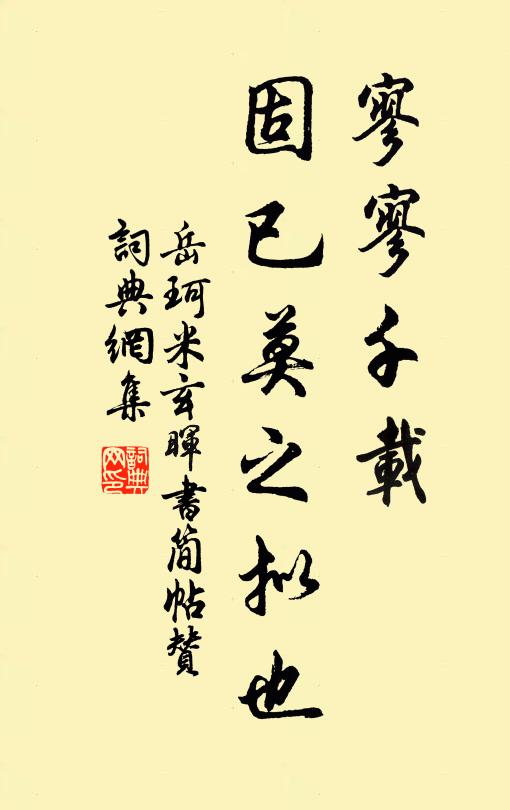 寥寥千載
固已莫之拟也
岳珂米玄暉書簡帖贊
詞典網集
詞典
网印